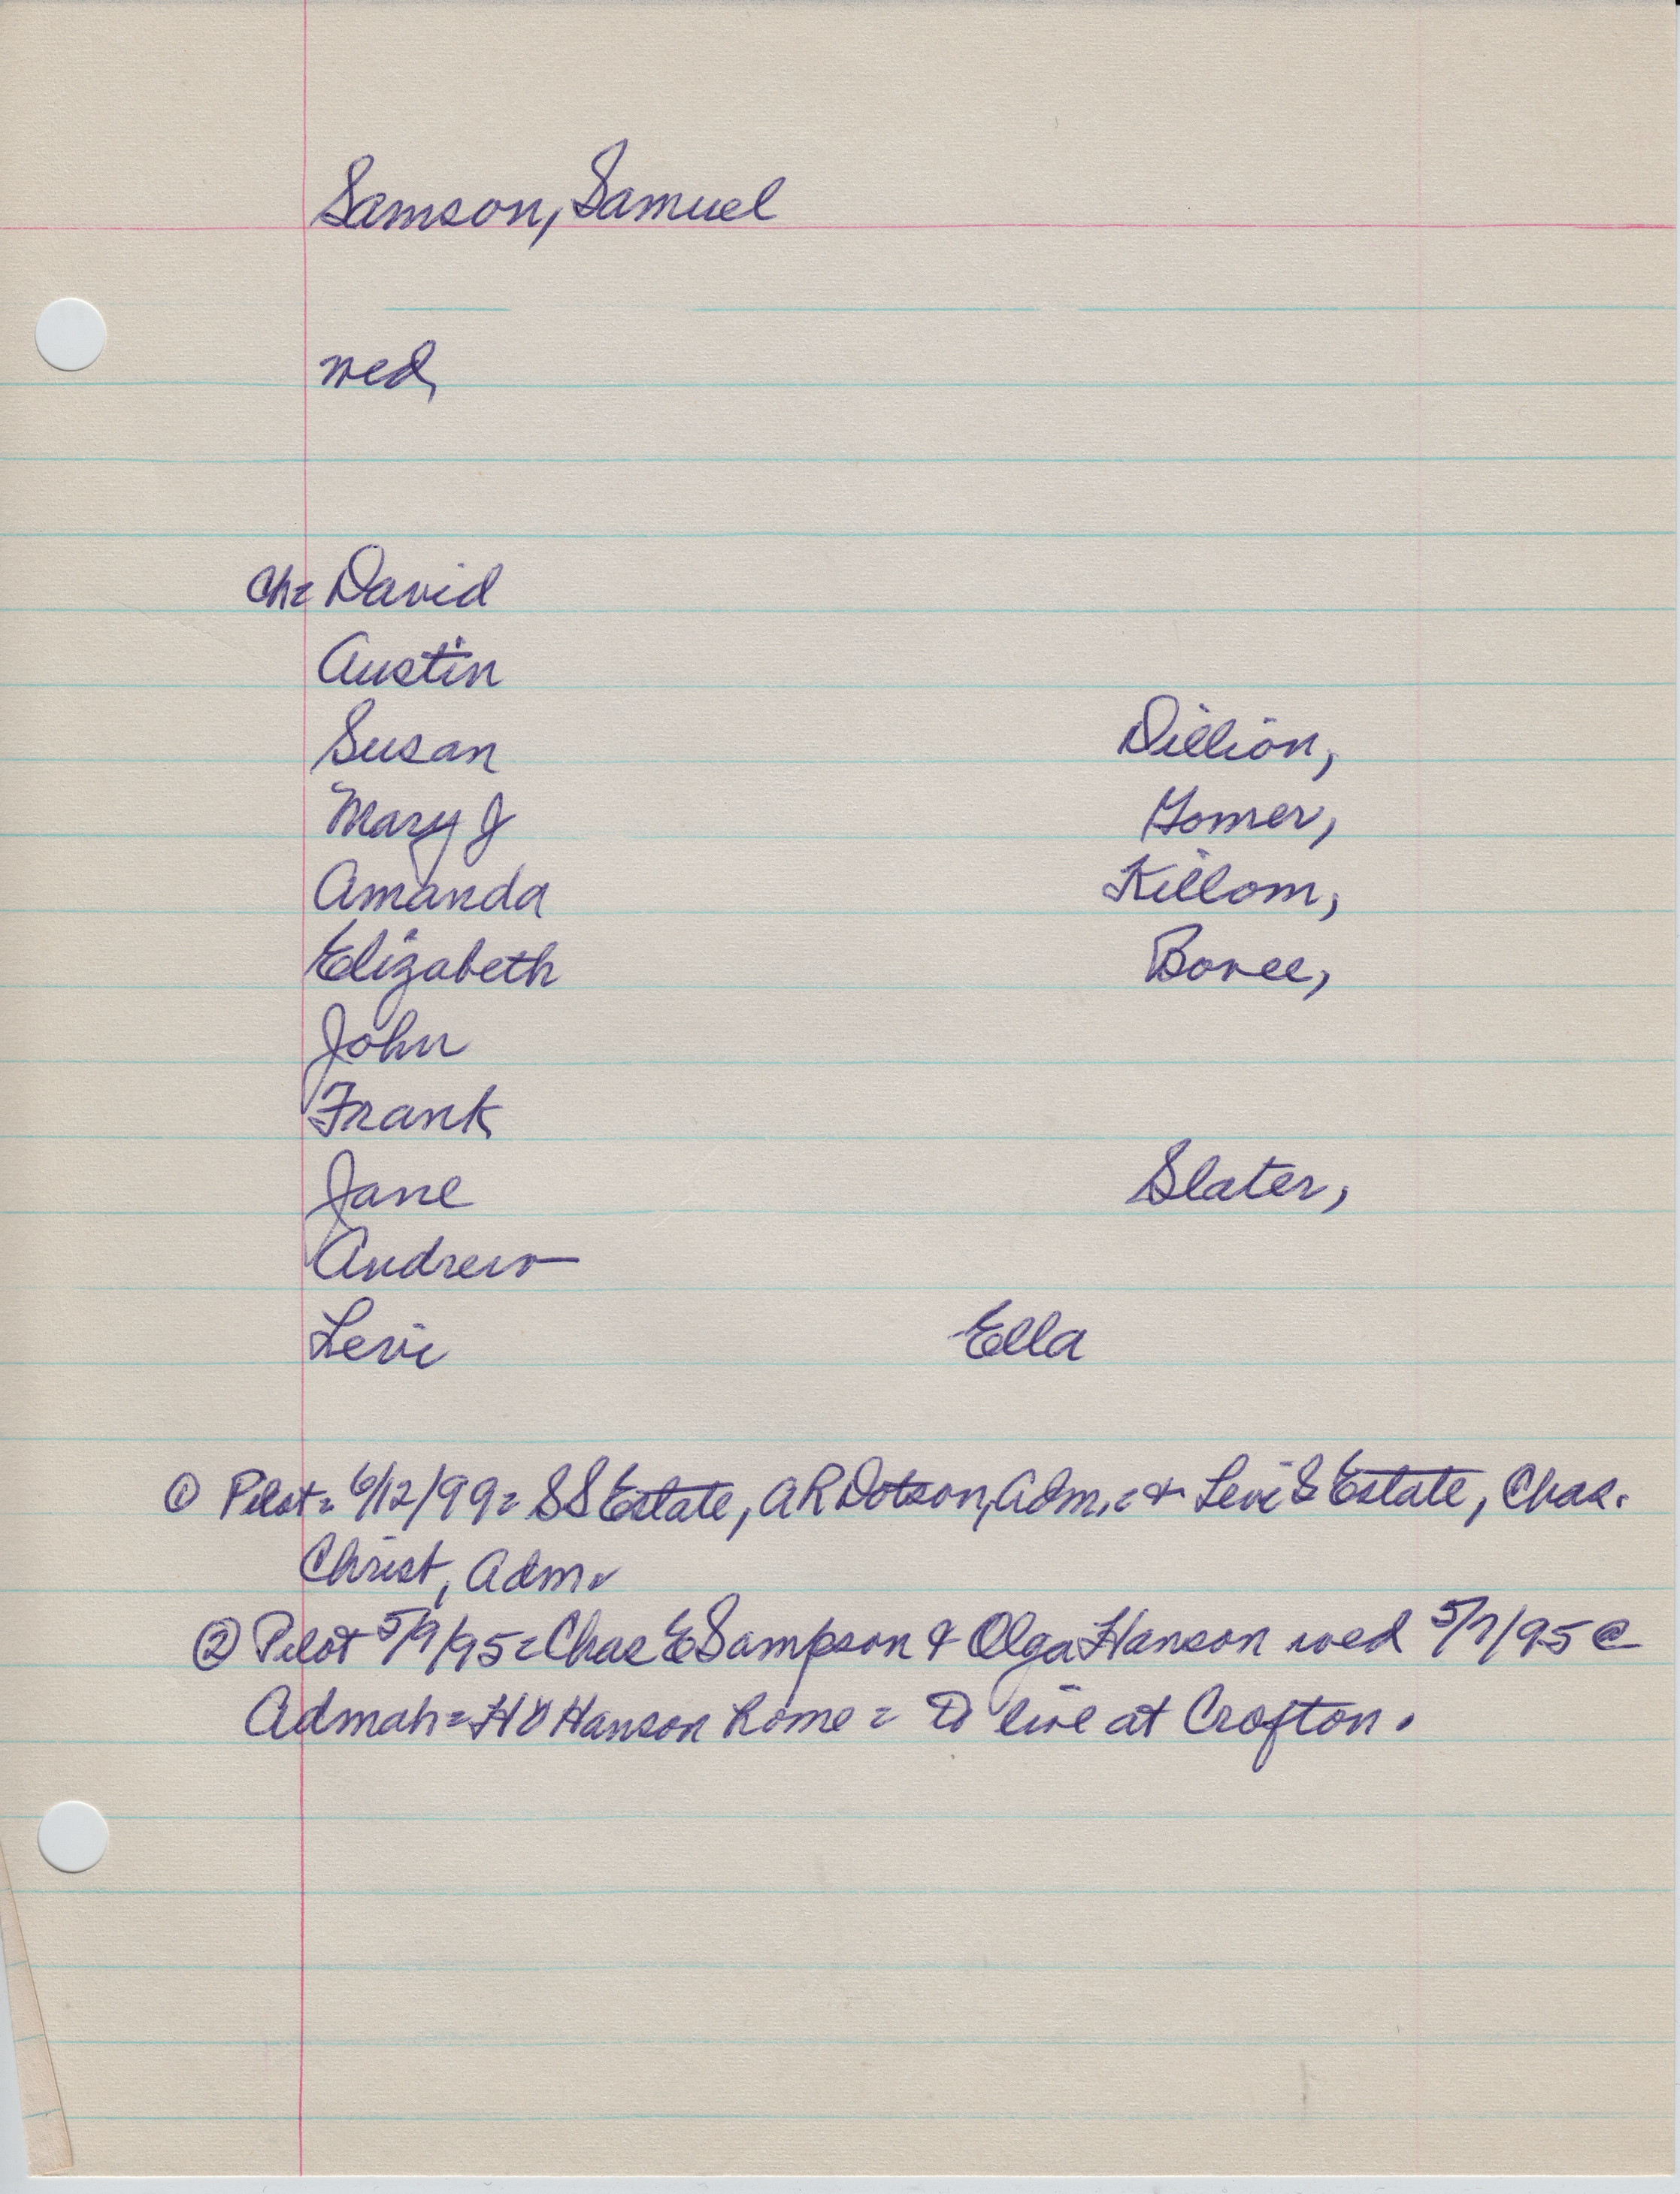 Samson, Samuel
wed,
Ch= David
Austin
Susan Dillion,
Mary J Gomer,
Amanda Killom,
Elizabeth Bovee,
John
Frank
Jane Slater,
Andrew
Levi Ella
① Pilot= 6/12/99= SS Estate, AR Dotson, Adm.= & Levi S Estate, Chas.
Christ, Adm.
② Pilot 5/9/95= Chas E Sampson & Olga Hanson wed 5/7/95 @
Admah= HO Hanson home = To live at Crofton.